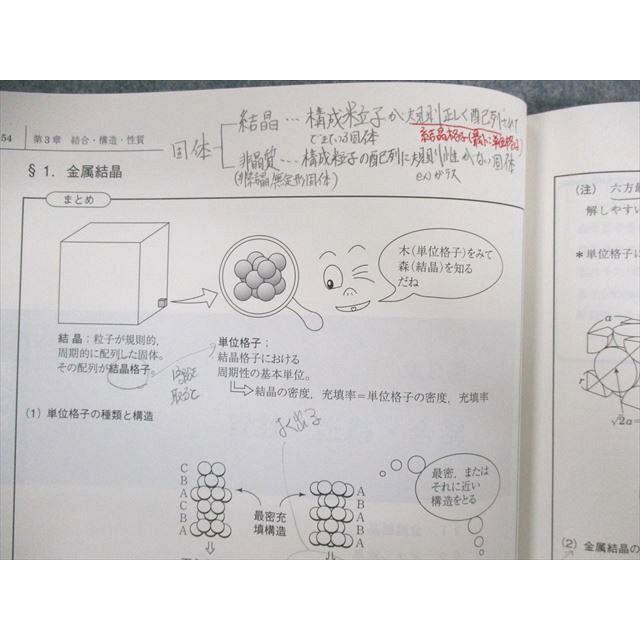 54 第3章 結合・構造・性質
固体
結晶…構成粒子が規則正しく配列されて
できている固体
結晶格子(最小:単位格子)
非晶質…構成粒子の配列に規則性がない固体
(非結晶/無定形固体)
ex)ガラス
§1. 金属結晶
まとめ
木(単位格子)をみて
森(結晶)を知る
だね
結晶;粒子が規則的,
周期的に配列した固体。
その配列が結晶格子。
単位格子;
結晶格子における
周期性の基本単位。
結晶の密度,充填率=単位格子の密度,充填率
(1) 単位格子の種類と構造
よく出る
C
B
A
C
B
A
最密充
填構造
A
B
A
B
A
最密,または
それに近い
構造をとる
(注) 六方最
解しやすい
*単位格子に
a
r
√2a=
(2) 金属結晶の